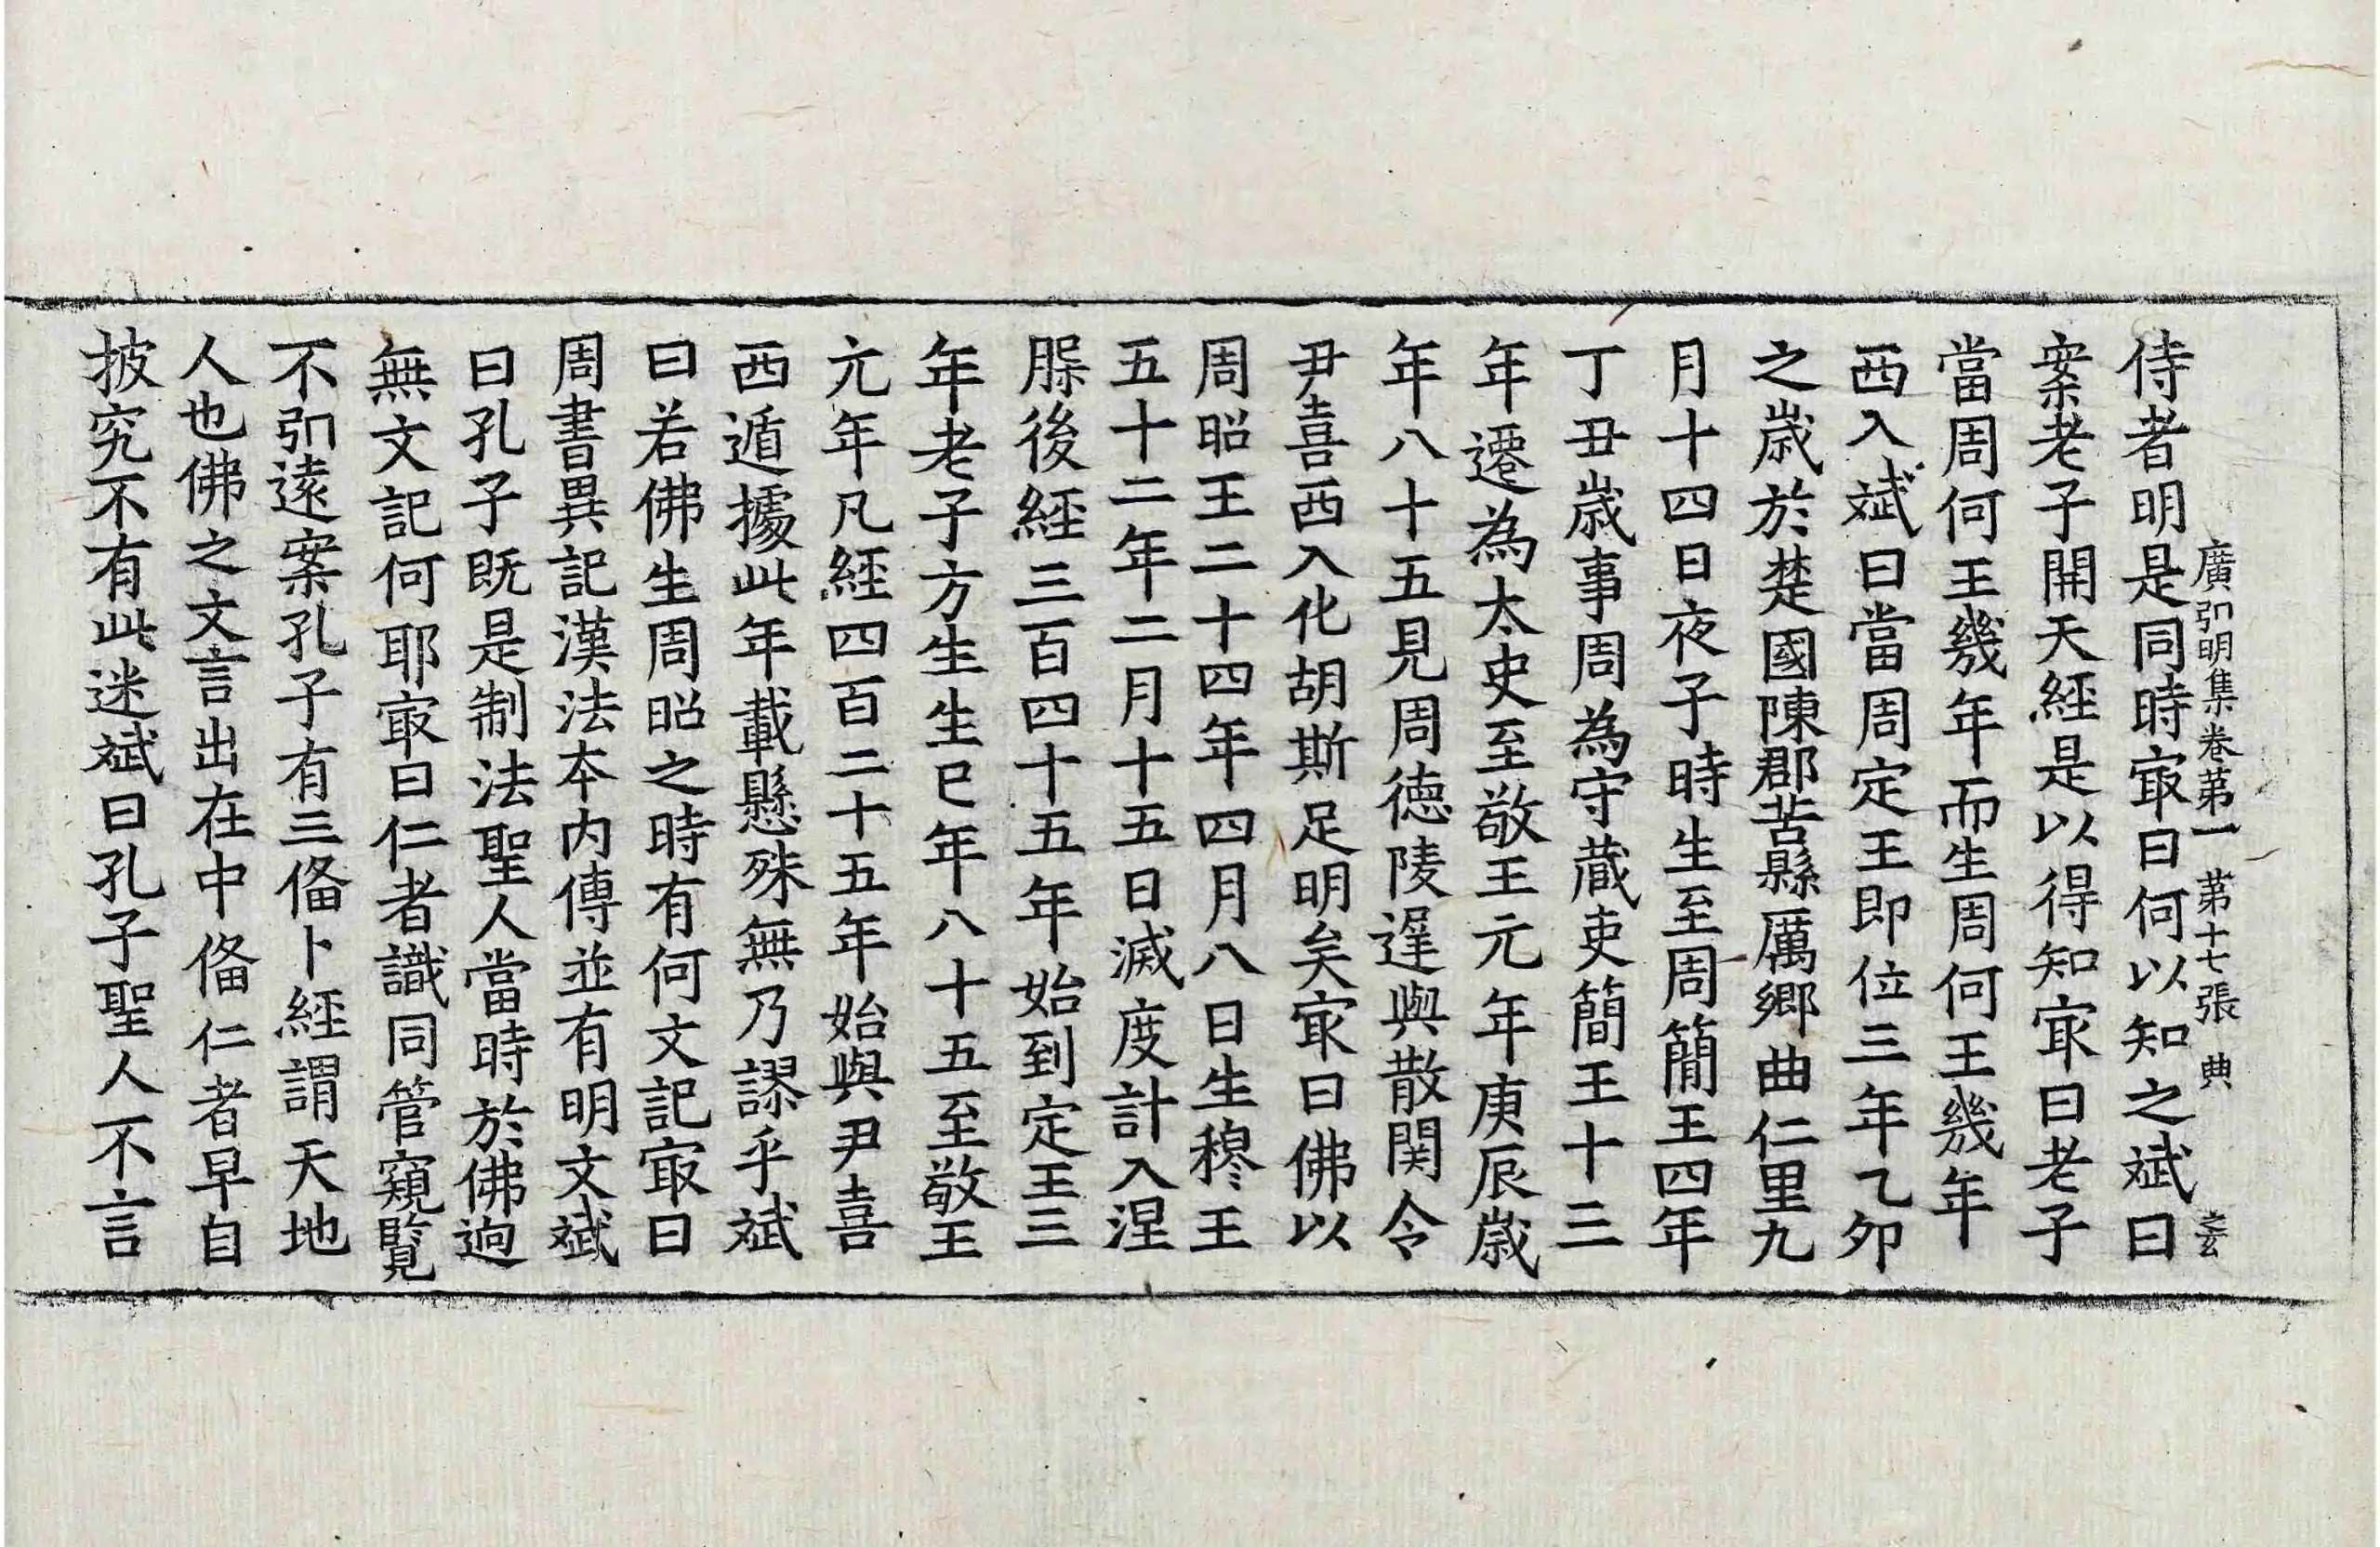 廣弘明集卷第一 第十七張 典
侍者明是同時㝡曰何以知之斌曰
案老子開天經是以得知㝡曰老子
當周何王幾年而生周何王幾年
西入斌曰當周定王即位三年乙卯
之歲於楚國陳郡苦縣厲鄉曲仁里九
月十四日夜子時生至周簡王四年
丁丑歲事周為守蔵吏簡王十三
年遷為太史至敬王元年庚辰歲
年八十五見周德陵遲與散関令
尹喜西入化胡斯足明矣㝡曰佛以
周昭王二十四年四月八日生穆王
五十二年二月十五日滅度計入涅
槃後經三百四十五年始到定王三
年老子方生生已年八十五至敬王
元年凡經四百二十五年始與尹喜
西遁據此年載懸殊無乃謬乎斌
曰若佛生周昭之時有何文記㝡曰
周書異記漢法本内傳並有明文斌
曰孔子既是制法聖人當時於佛逈
無文記何耶㝡曰仁者識同管窺覧
不弘遠案孔子有三俻卜經謂天地
人也佛之文言出在中俻仁者早自
披究不有此迷斌曰孔子聖人不言